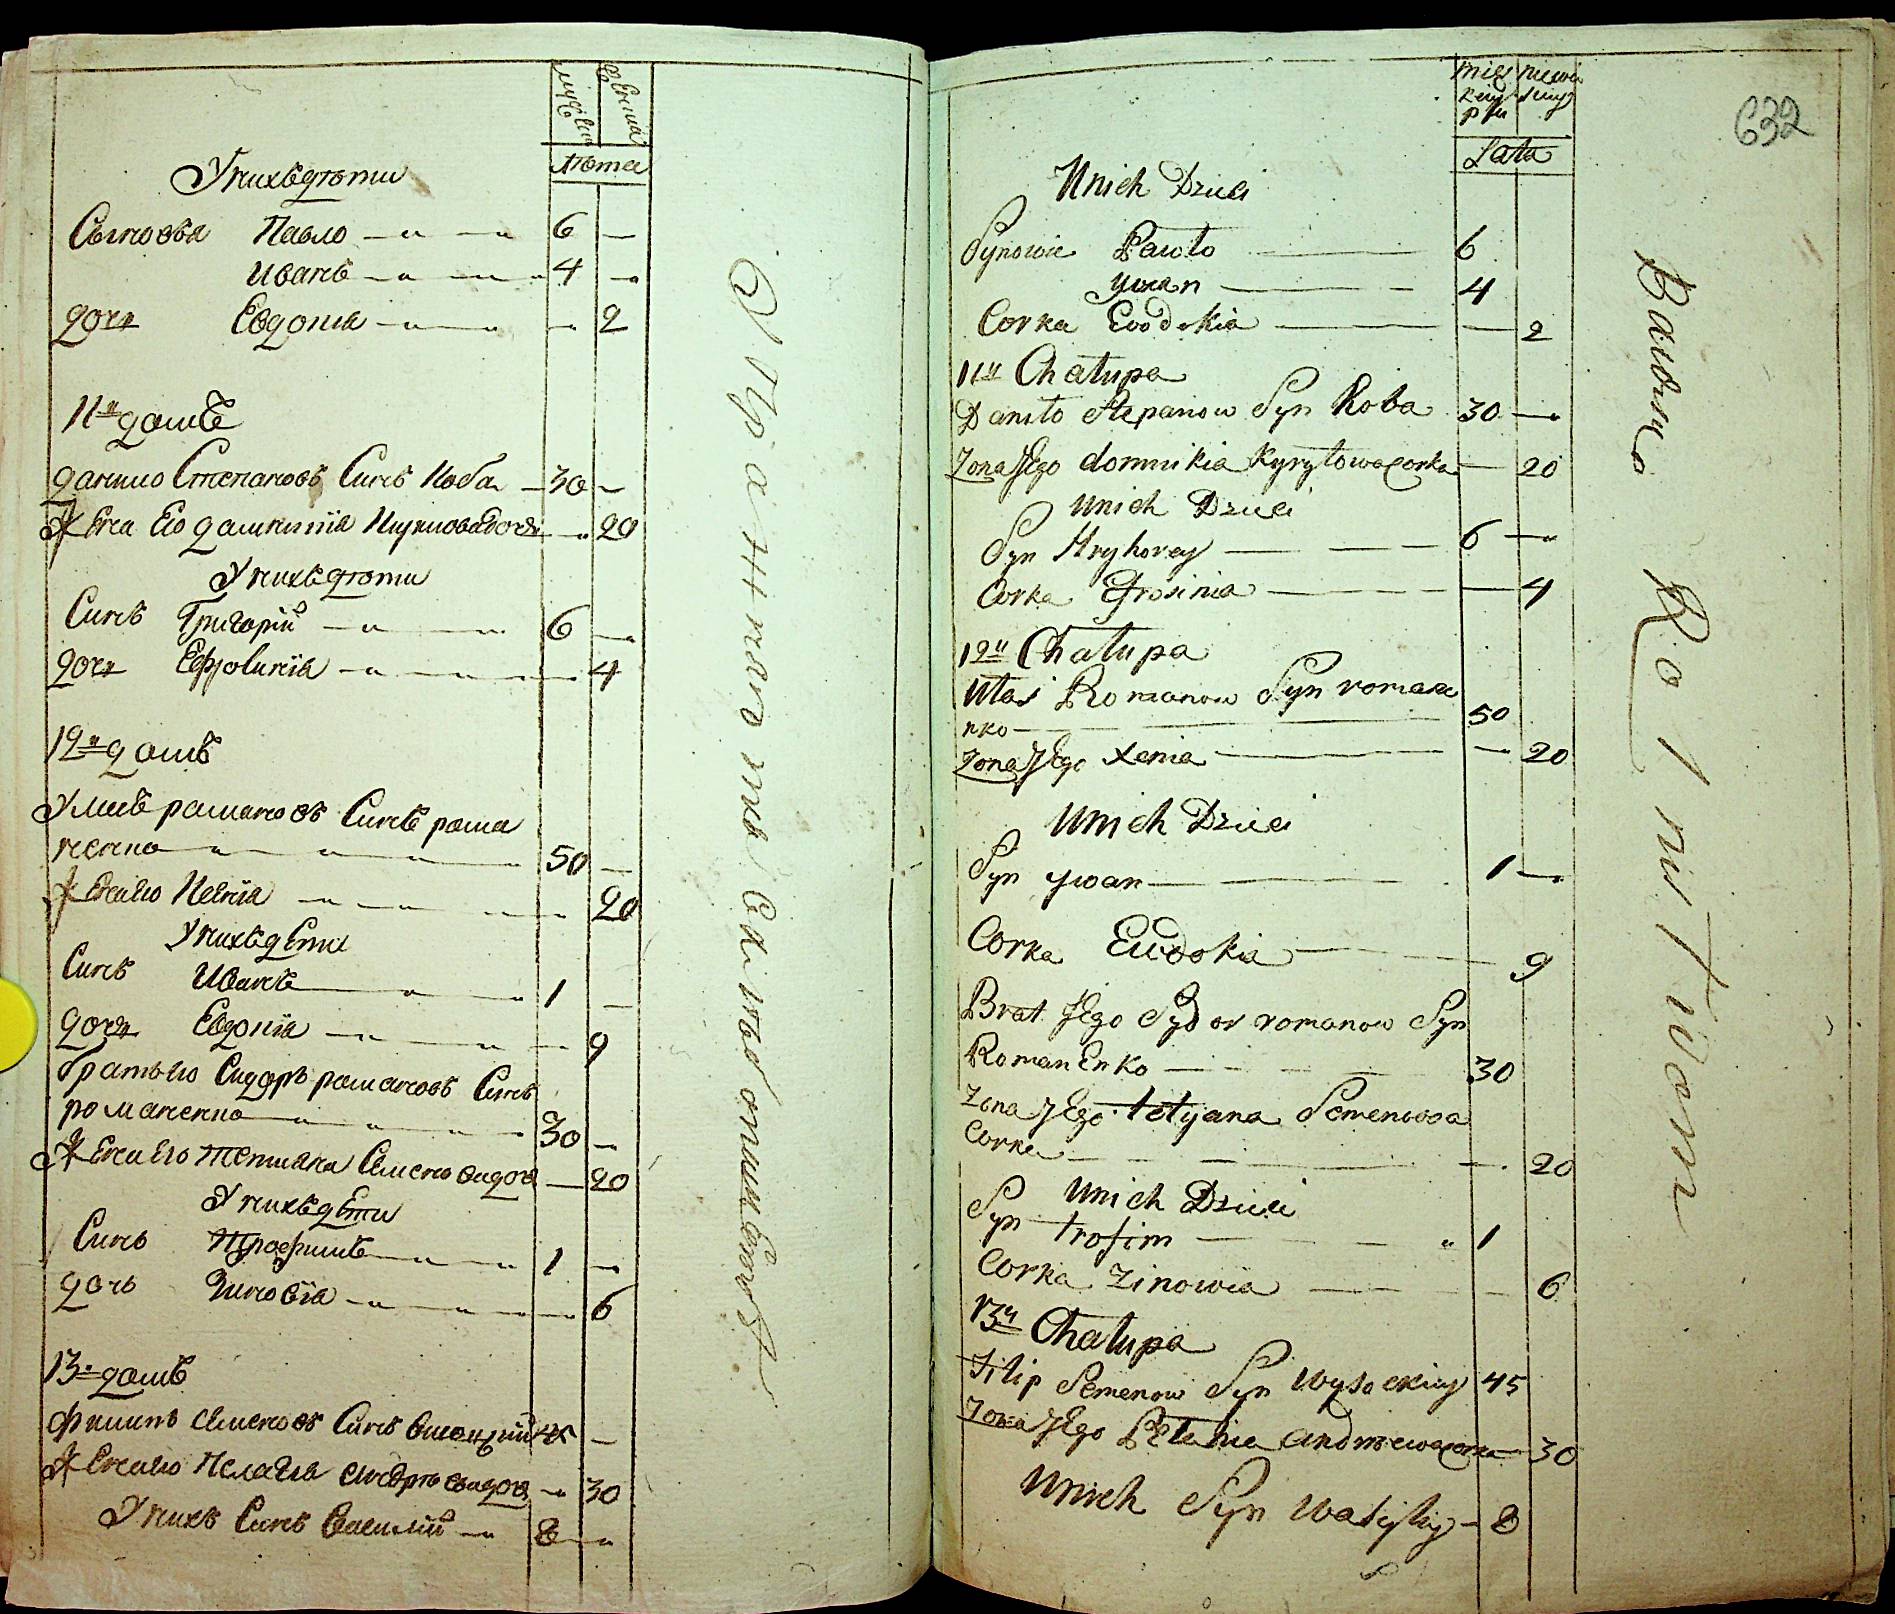 мужска
женска
Лѣта
У нихъ дѣти
Синова Павло 6 —
Иванъ 4 —
дочь Евдокія — 2
11й домъ
Данило Степановъ Синъ Коба 30 —
Жена Его Домникія Кирилова дочь — 20
У нихъ дѣти
Синъ Григорій 6 —
дочь Ефросинія — 4
12й домъ
Улисъ Романовъ Синъ Рома
ненко 50 —
Жена Его Ксенія 20
У нихъ дѣти
Синъ Иванъ 1 —
дочь Евдокія — 9
братъ Его Сидоръ Романовъ Синъ
Романенко 30 —
Жена Его Тетиана Семенова доч — 20
У нихъ дѣти
Синъ Трофимъ 1 —
дочь Зиновія — 6
13й домъ
Филипъ Семеновъ Синъ Висоцкій 45 —
Жена Его Пелагія — 30
У нихъ Синъ Василій 8 —
632
męż
kiey
płci
niewie
sciey
Lata
U nich Dzieci
Synowie Pawło 6
Ywan 4
Corka Ewdokia — 2
11ta Chałupa
Daniło Stepanow Syn Koba 30 —
Zona Jego domnikia Kyryłowa Corka — 20
U nich Dzieci
Syn Hryhorey 6 —
Corka Efrosinia — 4
12ta Chałupa
Ułas Romanow Syn romane
nko 50
Zona Jego Xenia — 20
U nich Dzieci
Syn ywan 1 —
Corka Ewdokia 9
Brat Jego Sydor romanow Syn
RomanEnko 30
Zona Jego tetyana Semenowa
Corka — 20
U nich Dzieci
Syn trofim 1
Corka Zinowia 6
13ta Chałupa
Filip Semenow Syn wysockiy 45
Zona Jego Pelahia Andrzeiowa Corka 30
U nich Syn Wasyly 8